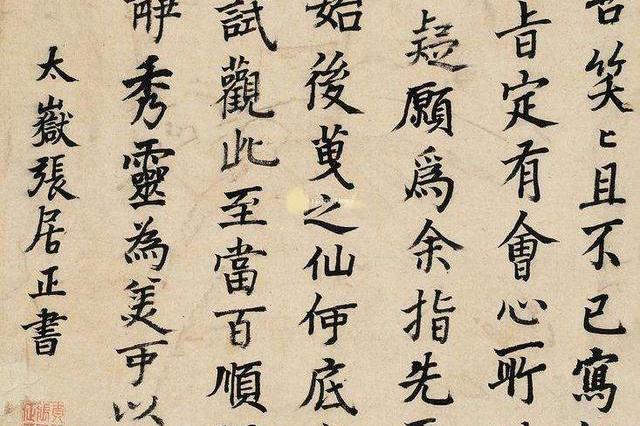 笑〻且不已寫
旨定有會心所
疑願爲余指先
始後之仙何底
試觀此至當百順
秀靈為美可以
太嶽張居正書